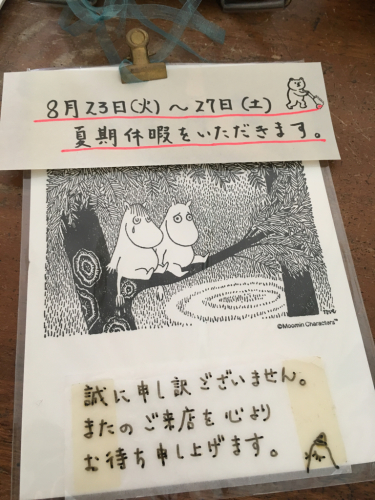 8月23日(火)～27日(土)
夏期休暇をいただきます。
TOVE
©Moomin Characters™
誠に申し訳ございません。
またのご来店を心より
お待ち申し上げます。